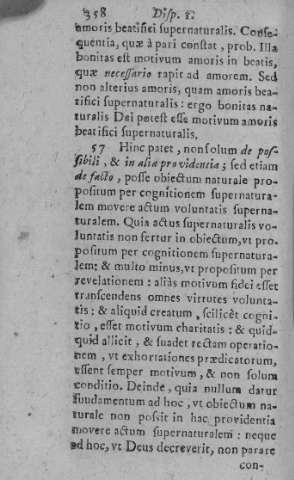 358 Disp. 1.
amoris beatifici supernaturalis. Conse-
quentia, quæ à pari constat, prob. Illa
bonitas est motivum amoris in beatis,
quæ necessario rapit ad amorem. Sed
non alterius amoris, quam amoris bea-
tifici supernaturalis: ergo bonitas na-
turalis Dei potest esse motivum amoris
beatifici supernaturalis.
57 Hinc patet, non solum de pos-
sibili, & in alia providentia; sed etiam
de facto, posse obiectum naturale pro-
positum per cognitionem supernatura-
lem movere actum voluntatis superna-
turalem. Quia actus supernaturalis vo-
luntatis non fertur in obiectum, vt pro-
positum per cognitionem supernatura-
lem: & multo minus, vt propositum per
revelationem: aliàs motivum fidei esset
transcendens omnes virtutes volunta-
tis: & aliquid creatum, scilicèt cogni-
tio, esset motivum charitatis: & quid-
quid allicit, & suadet rectam operatio-
nem, vt exhortationes prædicatorum,
essent semper motivum, & non solum
conditio. Deinde, quia nullum datur
fundamentum ad hoc, vt obiectum na-
turale non possit in hac providentia
movere actum supernaturalem: neque
ad hoc, vt Deus decreverit, non parare
con-